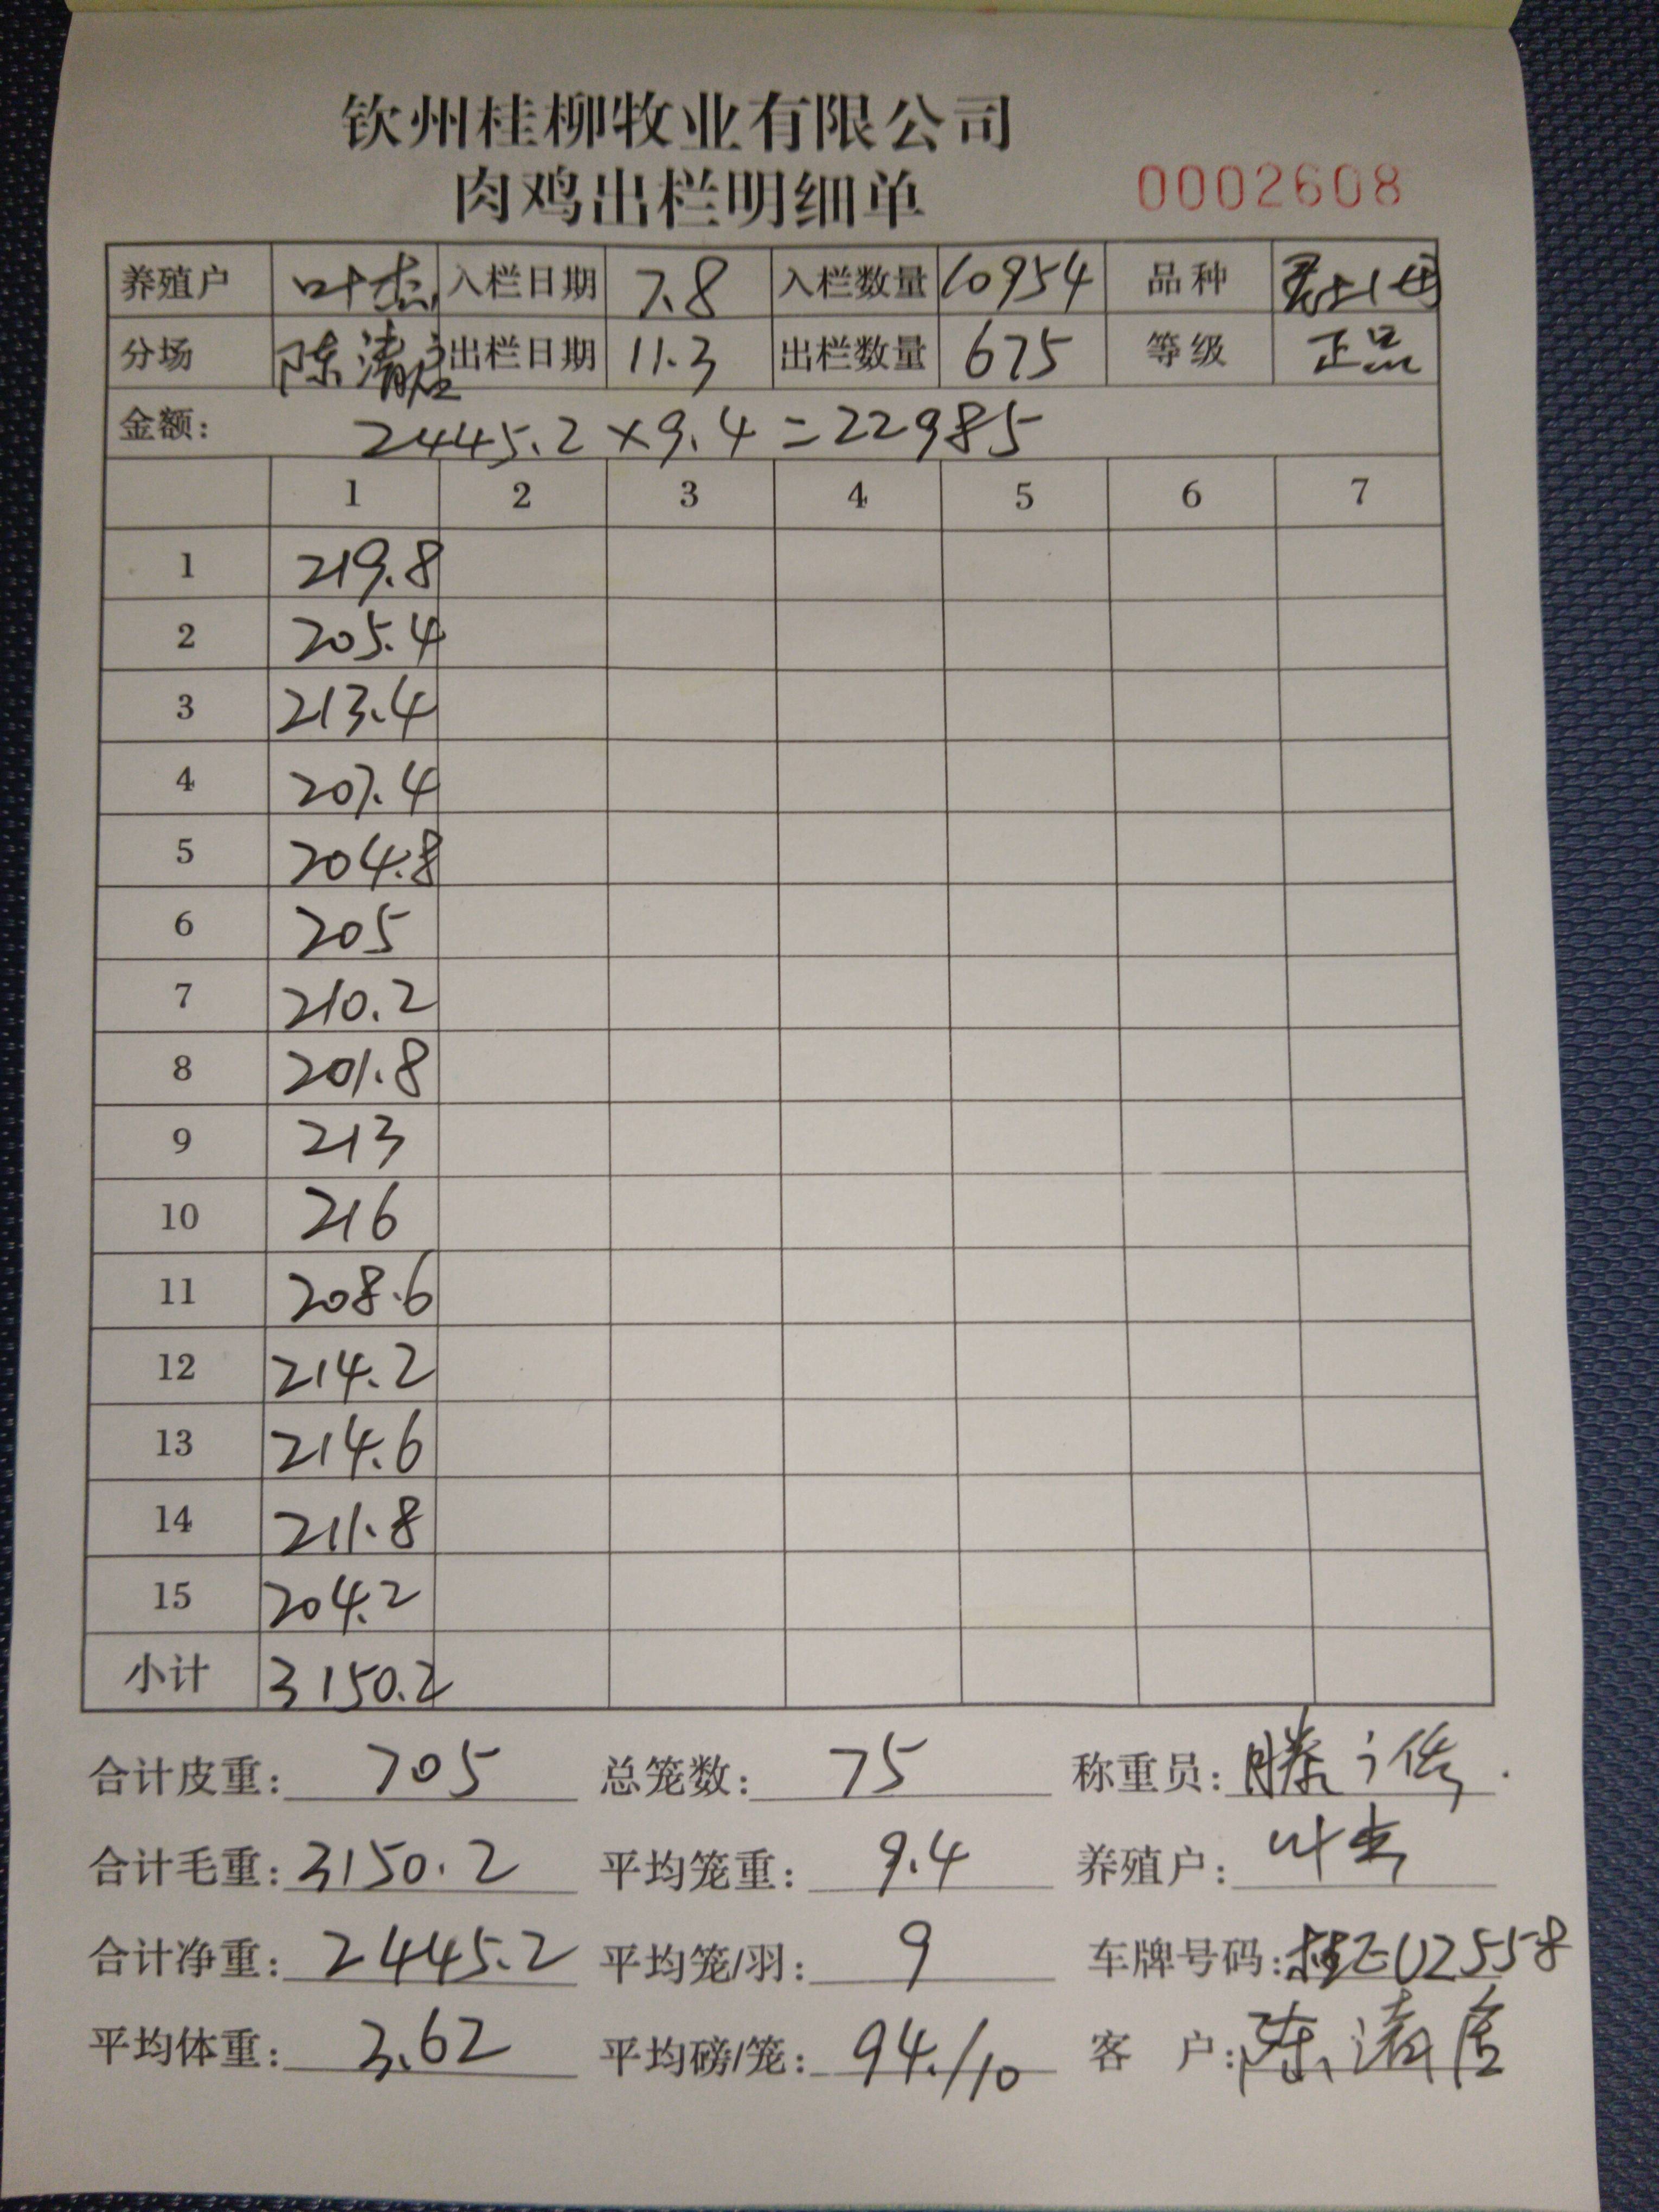 钦州桂柳牧业有限公司
肉鸡出栏明细单 0002608
养殖户 叶杰 入栏日期 7.8 入栏数量 10954 品种
分场 陈清 出栏日期 11.3 出栏数量 675 等级 正品
金额： 2445.2×9.4=22985
1 2 3 4 5 6 7
1 219.8
2 205.4
3 213.4
4 207.4
5 204.8
6 205
7 210.2
8 201.8
9 213
10 216
11 208.6
12 214.2
13 214.6
14 211.8
15 204.2
小计 3150.2
合计皮重： 705 总笼数： 75 称重员： 滕
合计毛重： 3150.2 平均笼重： 9.4 养殖户： 叶杰
合计净重： 2445.2 平均笼/羽： 9 车牌号码：
平均体重： 3.62 平均磅/笼： 94./10 客 户： 陈清